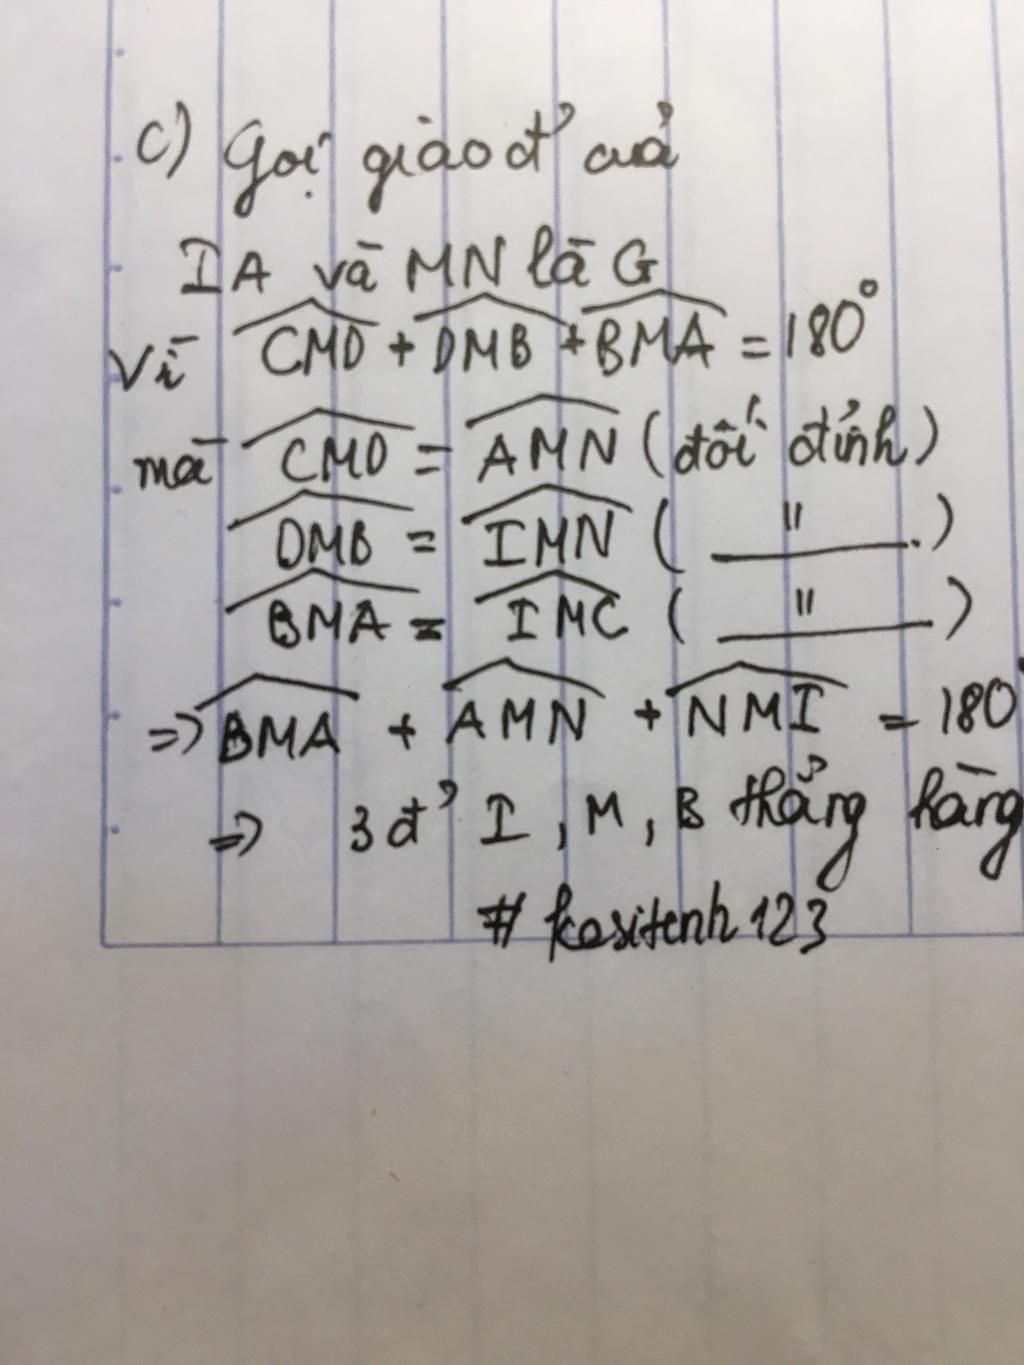 c) Gọi giao đ' của
IA và MN là G
Vì CMD + DMB + BMA = 180°
mà CMD = AMN (đối đỉnh)
DMB = IMN ( " )
BMA = IMC ( " )
=> BMA + AMN + NMI = 180°
=> 3 đ' I, M, B thẳng hàng
# kasitenh123